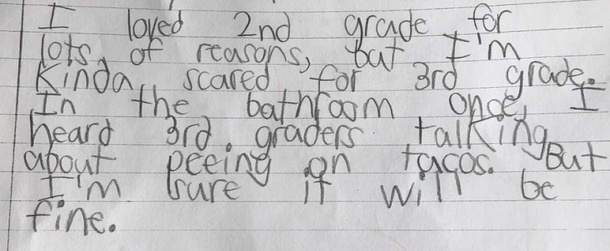 I loved 2nd grade for
lots, of reasons, but I'm
Kinda scared for 3rd grade.
In the bathroom once, I
heard 3rd. graders talking
about peeing on tacos. But
I'm sure it will be
fine.